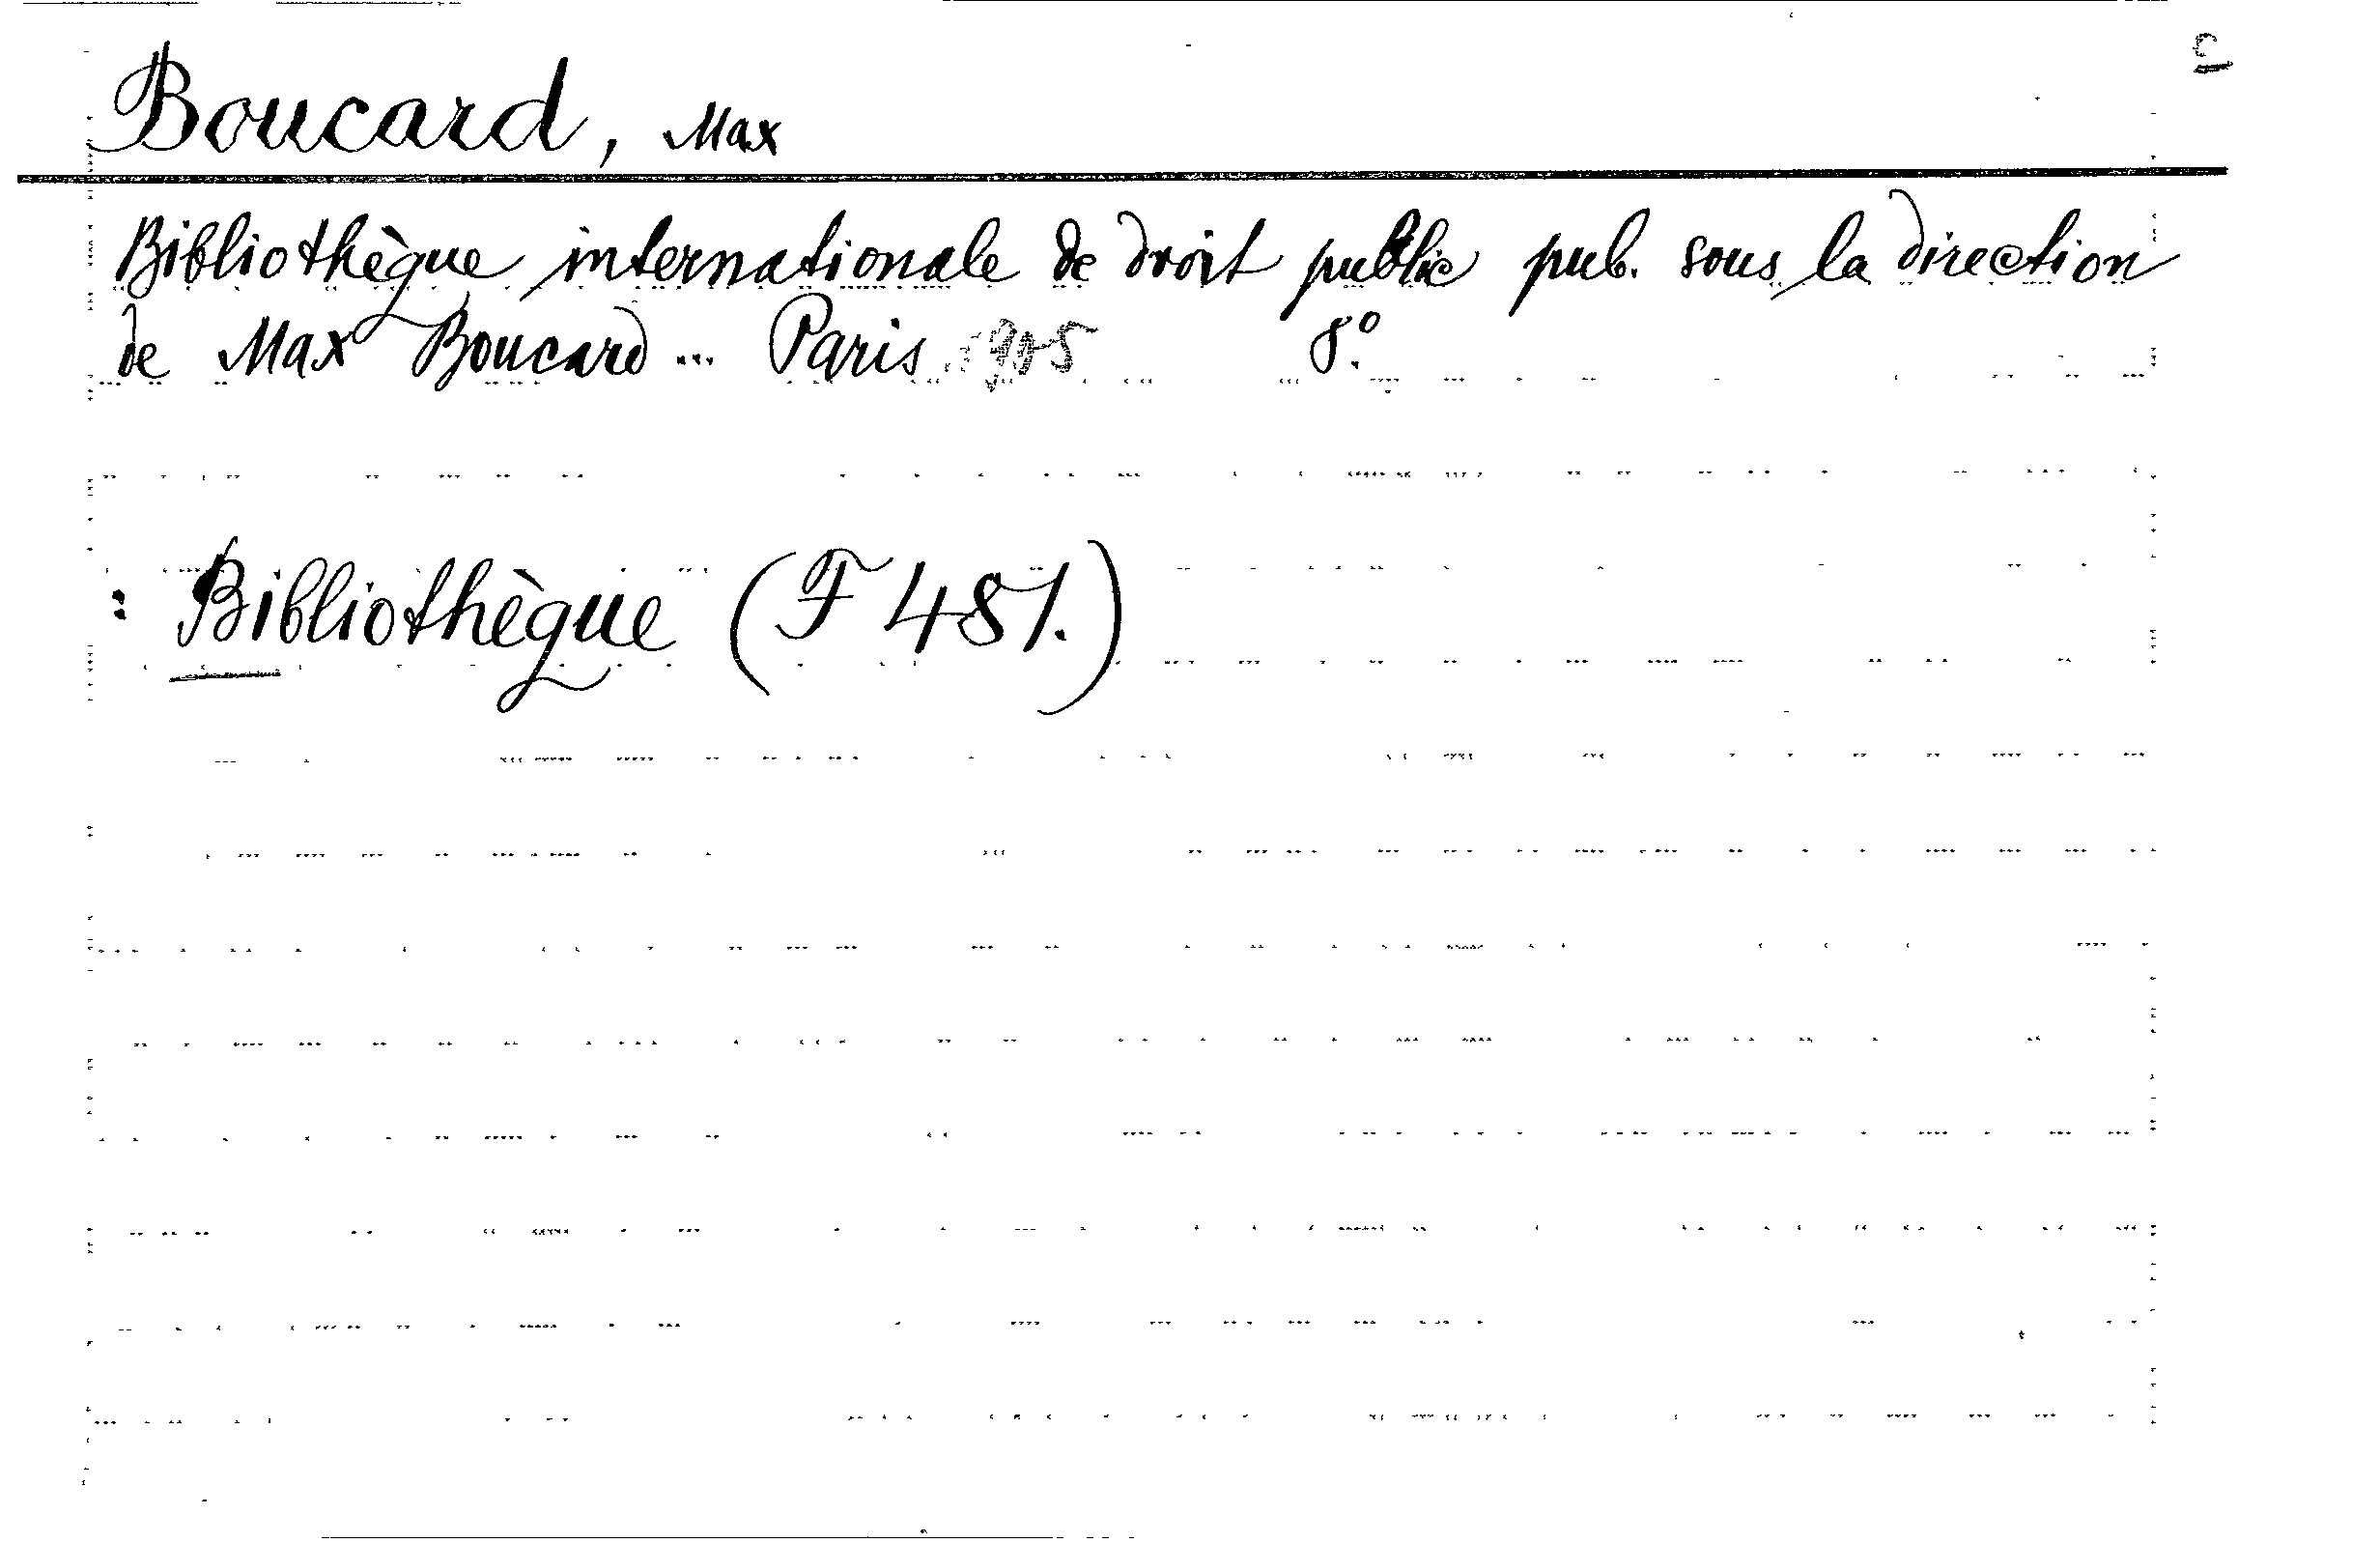 c
Boucard, Max
Bibliothèque internationale de droit public pub. sous la direction
de Max Boucard... Paris 1905 8°.
: Bibliothèque (F 481.)